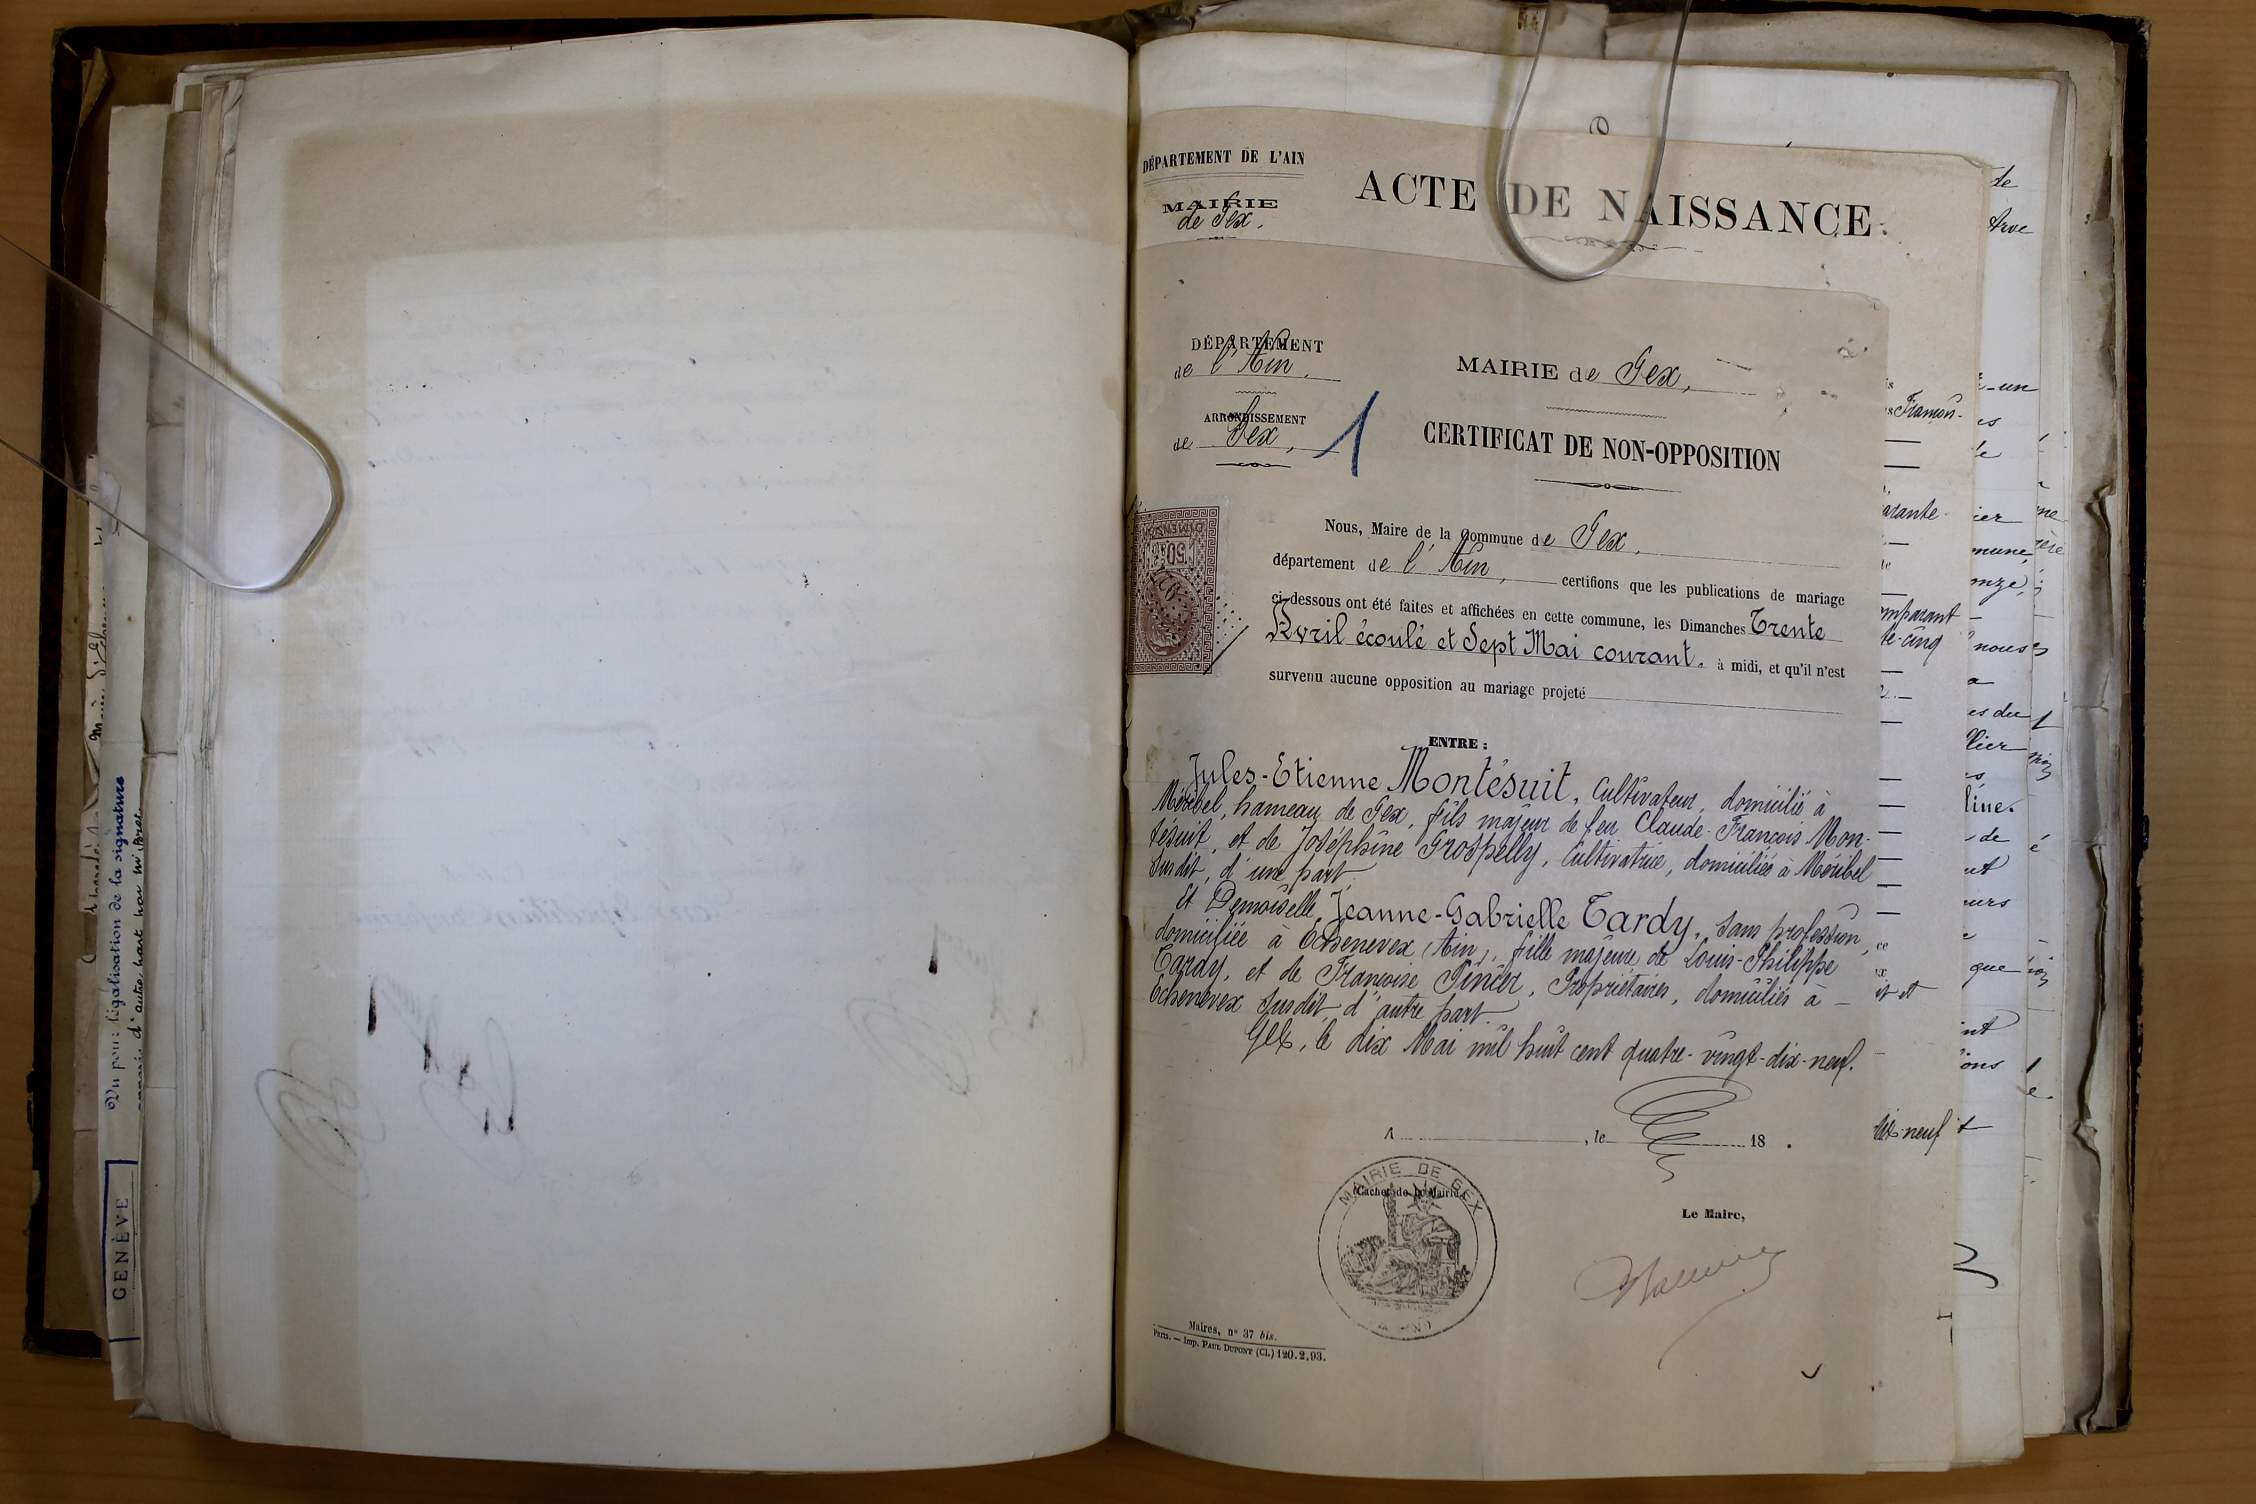 DÉPARTEMENT DE L'AIN
MAIRIE
de Gex.
ACTE DE NAISSANCE
DÉPARTEMENT
de l'Ain.
ARRONDISSEMENT
de Gex,
1
MAIRIE de Gex,
CERTIFICAT DE NON-OPPOSITION
DIMENSION
Nous, Maire de la Commune de Gex,
département de l'Ain, certifions que les publications de mariage
ci-dessous ont été faites et affichées en cette commune, les Dimanches Trente
Avril écoulé et Sept Mai courant, à midi, et qu'il n'est
survenu aucune opposition au mariage projeté
ENTRE :
Jules-Etienne Montésuit, Cultivateur, domicilié à
Méribel, hameau de Gex, fils majeur de feu Claude-François Mon-
tésuit, et de Joséphine Grospelly, Cultivatrice, domiciliée à Méribel
susdit, d'une part,
Et Demoiselle Jeanne-Gabrielle Tardy, sans profession,
domiciliée à Echenevex (Ain), fille majeure de Louis-Philippe
Tardy, et de Françoise Pincer, Propriétaires, domiciliés à –
Echenevex susdit, d'autre part.
Gex, le dix Mai mil huit cent quatre-vingt-dix-neuf.
A , le 18 .
(Cachet de la Mairie)
MAIRIE DE GEX
(AIN)
Le Maire,
Maires, n° 37 bis.
Paris. — Imp. PAUL DUPONT (Cl.) 120.2.93.
de
Arve
-un
Framon-
es
arante-
ier
mune,
onze,
omparant
te-cinq
nous
es du
llier
line.
de
eurs
que
et et
ons
dix-neuf
Vu pour légalisation de la signature
d'autre part
GENÈVE